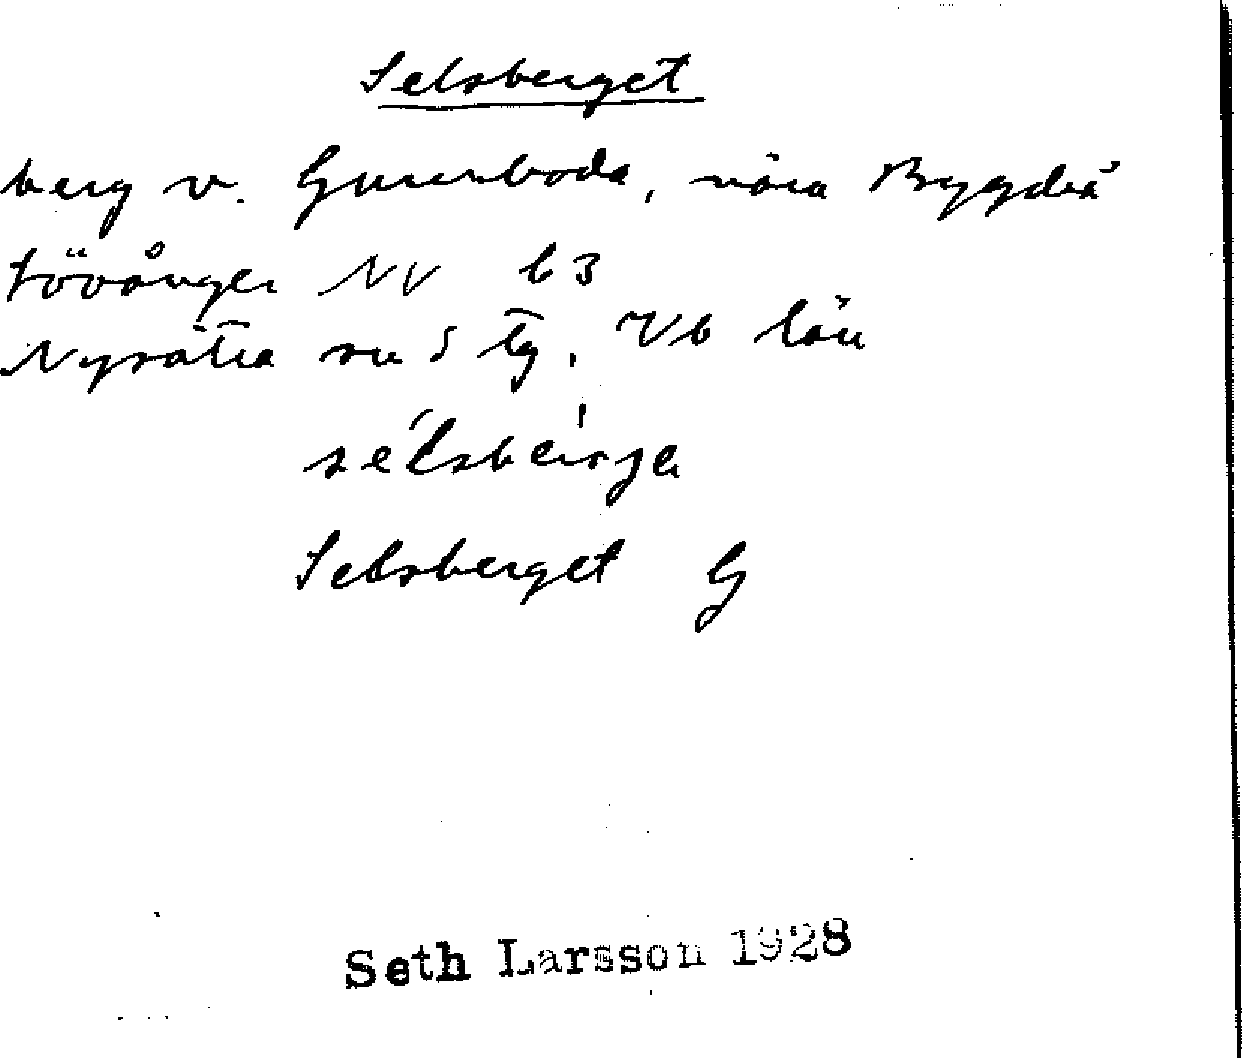 Selsberget
berg v. Gunnboda, nära Bygdeå
Lövånger NV b3
Nysätra sn S tg, Vb län
Selsberget G
Seth Larsson 1928